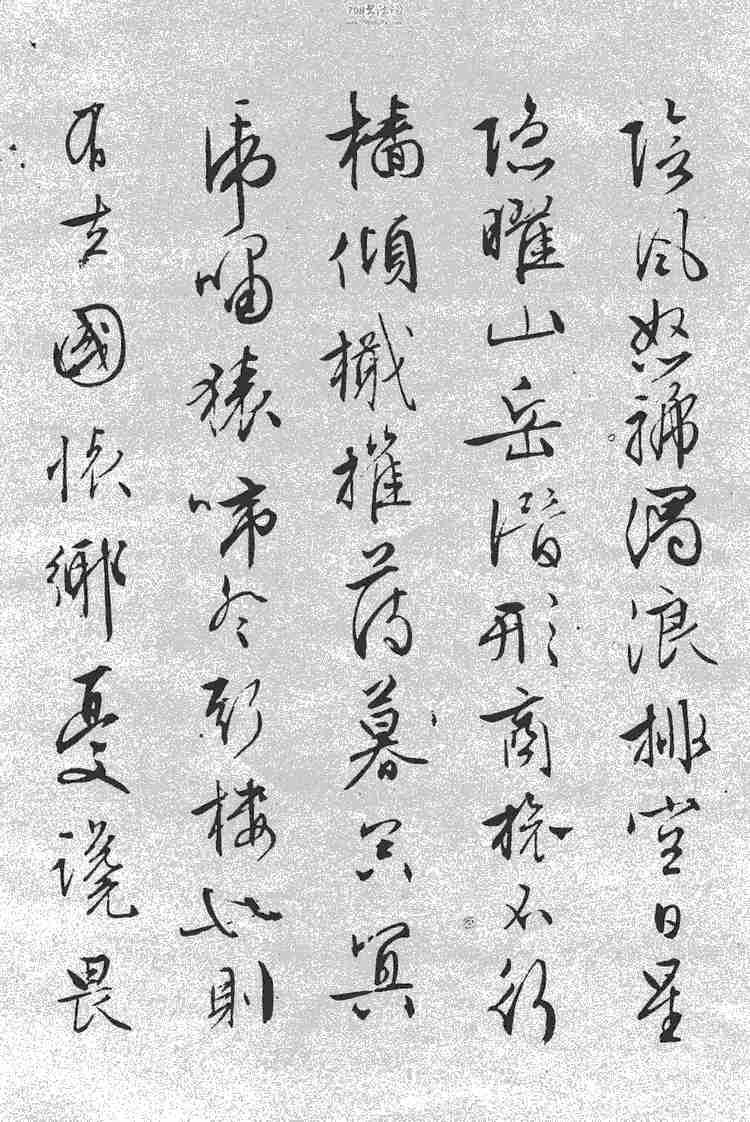 陰風怒號濁浪排空日星
隱曜山岳潛形商旅不行
檣傾檝摧薄暮冥冥
虎嘯猿啼登斯樓也則
有去國懷鄉憂讒畏